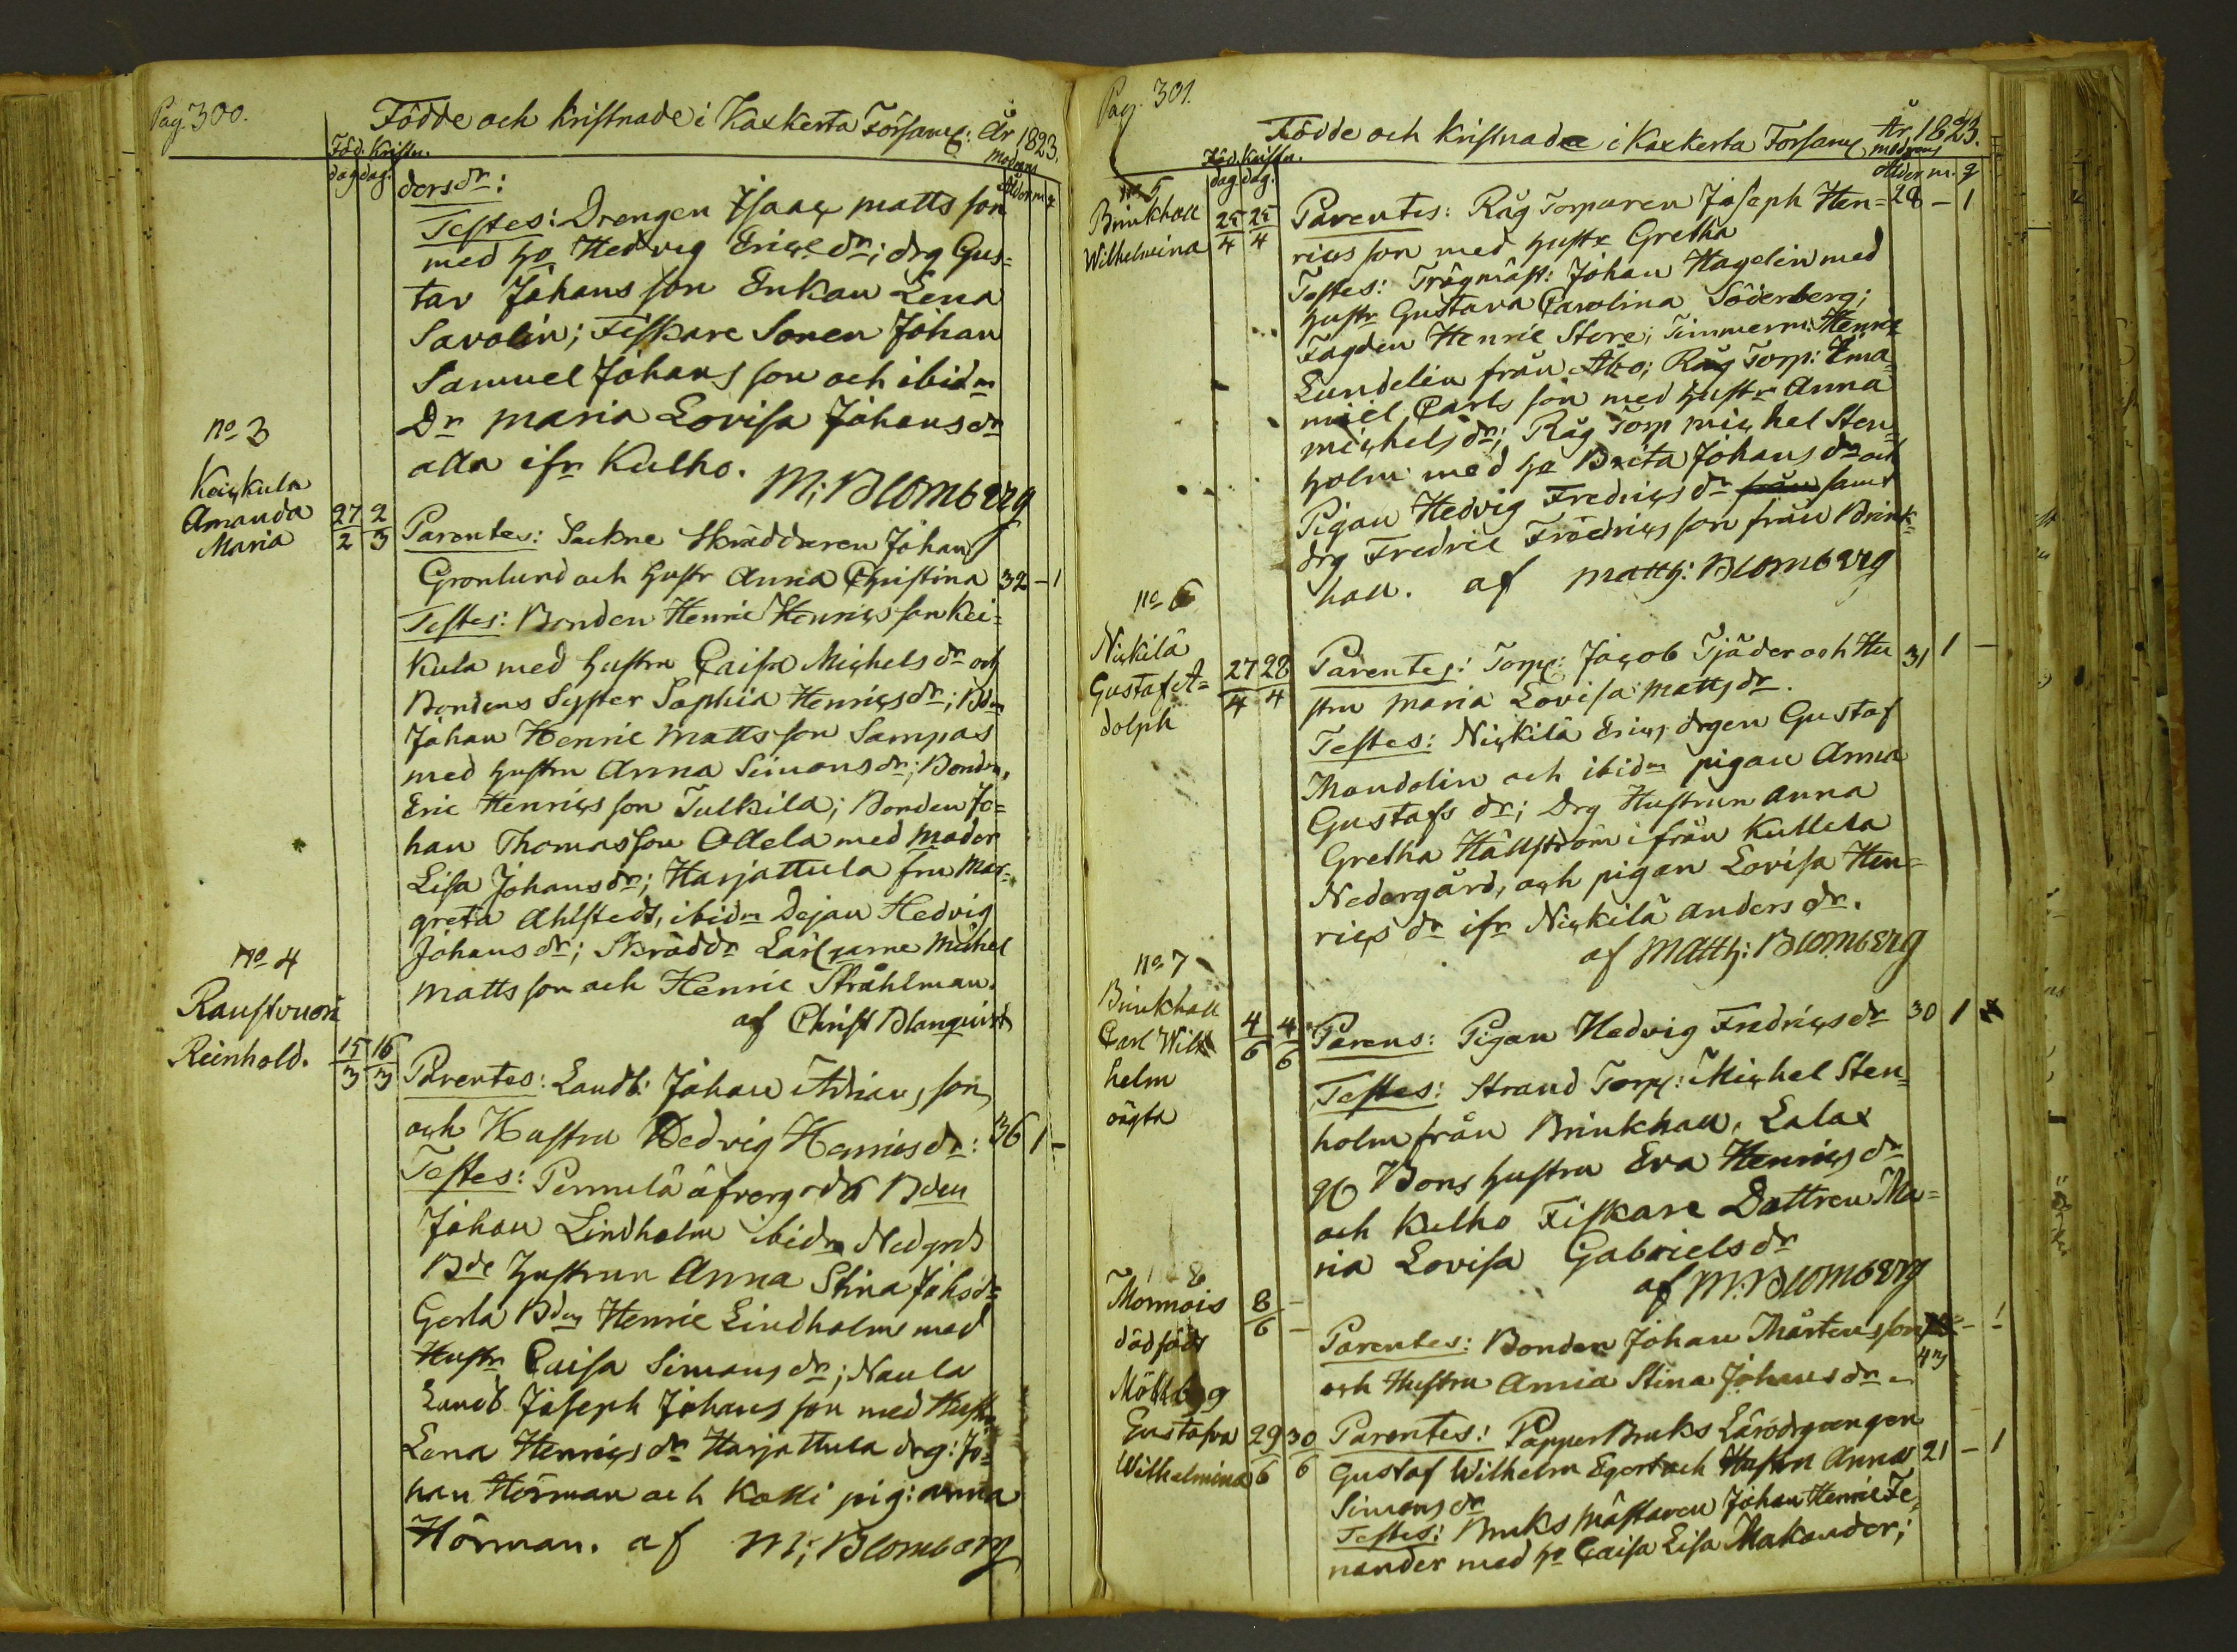 Pag. 300.
Födde och Kristnade i Kaxkerta Församl: År 1823.
Föd. Kristn. modrens
dag dag. Ålder m q
dersdr:
Testes: Drengen Isaac matts son
med ho Hedvig Ericsdr; drg Gus=
tav Johans son Enkan Lena
Savolin; Fiskare Sonen Johan
Samuel Johans son och ibidm
Dr Maria Lovisa Johansdr
alla ifr Kulho. M: Blomberg
No 3
Keickula
Amanda
Maria
27/2 2/3
Parentes: Sockne Skräddaren Johan
Gronlund och hustr Anna Christina 32 – 1
Testes: Bonden Henric Henrics son Kei=
kula med hustru Caisa Michelsdr och
Bondens Syster Sophia Henricsdr; Bdn
Johan Henric Mattsson Sampas
med hustru Anna Simonsdr; Bondn
Eric Henrics son Tulkila; Bonden Jo=
han Thomasson Ollela med moder
Lisa Johansdr; Harjattula fru Mar=
greta Ahlstedt, ibidm Dejan Hedvig
Johansdr; Skräddr Lärlgarne Michel
Matts son och Henric Stråhlman.
af Christ Blanquist
No 4
Raustvuori
Reinhold.
15/3 16/3
Parentes: Landb: Johan Adrians son
och Hustru Hedvig Henricsdr: 36 1 –
Testes: Pennilä öfvergrds Bden
Johan Lindholm ibidm Nedgrds
Bde hustrun Anna Stina Johsdr
Gerla Bdn Henric Lindholm med
Hustr Caisa Simonsdr; Naula
Landb Joseph Johans son med Hustr
Lena Henricsdr Harjattula drg: Jo=
han Hörman och Kolli pig: anna
Hörman. af M: Blomberg
Pag. 301.
Födde och Kristnade i Kaxkerta Forsaml År 1823.
Föd. Kristn. modrens
dag. dag. Ålder m. q
No 5
Brinkhall
Wilhelmina
25/4 25/4
Parentes: Råg Torparen Joseph Hen= 28 – 1
rics son med hustr Gretha
Testes: Trägmäst: Johan Hagelin med
hustr Gustava Carolina Söderberg;
Fagden Henric Store; Timmerm: Henric
Lundelin från Åbo; Råg Torp: Ema=
niel Carls son med hustr Anna
Michelsdr; Råg Torp Michel Sten=
holm med ho Breta Johansdr och
Pigan Hedvig Fredricsdr från samt
drg Fredric Frödrics son från Brink=
hall. af Matth: Blomberg
No 6
Nickilä
Gustaf A=
dolph
27/4 28/4
Parentes: Torp: Jacob Tjäder och Hu 31 1 –
stru Maria Lovisa Mattsdr.
Testes: Nickilä Erics drgen Gustaf
Mandolin och ibidm pigan Anna
Gustafsdr; Drg Hustrun Anna
Gretha Hällström ifrån Kullela
Nedergård, och pigan Lovisa Hen=
ricsdr ifr Nickilä Andersdr.
af Matth: Blomberg
No 7
Brinkhall
Carl Wil
helm
oägta
4/6 4/6
Parens: Pigan Hedvig Fredricsdr 30 1
Testes: Strand Torp: Michel Sten=
holm från Brinkhall, Lalax
Bons hustru Eva Henricsdr
och Kulho Fiskare Dottren Ma=
ria Lovisa Gabrielsdr
af M. Blomberg
8
Monnois
dödfödt
8/6 –
Parentes: Bonden Johan Mårtensson – 1
och Hustru Anna Stina Johansdr
Möllbg
Gustafva
Wilhelmina
29/6 30/6
Parentes: Papper Bruks Lärodrgængen
Gustaf Wilhelm Egert och Hustru Anna 21 – 1
Simonsdr
Testes: Bruks Mästaren Johan Henric Fe=
nander med ho Caisa Lisa Makander;